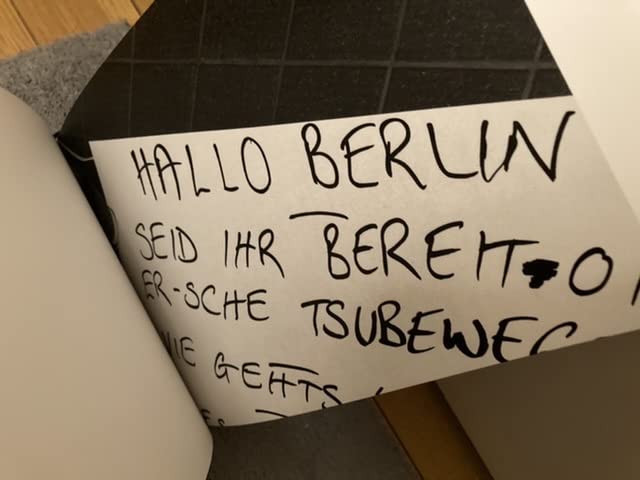 HALLO BERLIN
SEID IHR BEREIT
ER-SCHE
WIE GEHTS